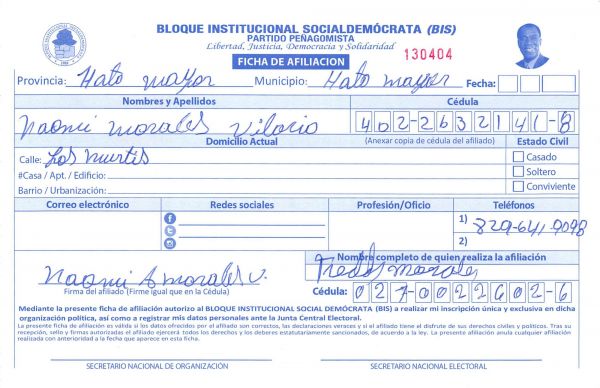 BLOQUE INSTITUCIONAL SOCIALDEMÓCRATA (BIS)
PARTIDO PEÑAGOMISTA
Libertad, Justicia, Democracia y Solidaridad
FICHA DE AFILIACION
130404
Provincia: Hato mayor Municipio: Hato mayor Fecha:
Nombres y Apellidos Cédula
Naomi Morales Vilorio 402-2632141-8
Domicilio Actual (Anexar copia de cédula del afiliado) Estado Civil
Calle: Los
#Casa / Apt. / Edificio:
Barrio / Urbanización:
Casado
Soltero
Conviviente
Correo electrónico Redes sociales Profesión/Oficio Teléfonos
1) 829-641-9098
2)
Nombre completo de quien realiza la afiliación
Naomi Morales V. Freddy Morales
Firma del afiliado (Firme igual que en la Cédula) Cédula: 027-0022602-6
Mediante la presente ficha de afiliación autorizo al BLOQUE INSTITUCIONAL SOCIAL DEMÓCRATA (BIS) a realizar mi inscripción única y exclusiva en dicha
organización política, así como a registrar mis datos personales ante la Junta Central Electoral.
La presente ficha de afiliación es válida si los datos ofrecidos por el afiliado son correctos, las declaraciones veraces y si el afiliado tiene el disfrute de sus derechos civiles y políticos. Tras su
recepción, sello y firmas autorizadas el afiliado ejercerá todos los derechos y los deberes estatutariamente sancionados, de acuerdo a la ley. La presente afiliación anula cualquier afiliación
realizada con anterioridad a la fecha que aparece en esta ficha.
SECRETARIO NACIONAL DE ORGANIZACIÓN SECRETARIO NACIONAL ELECTORAL